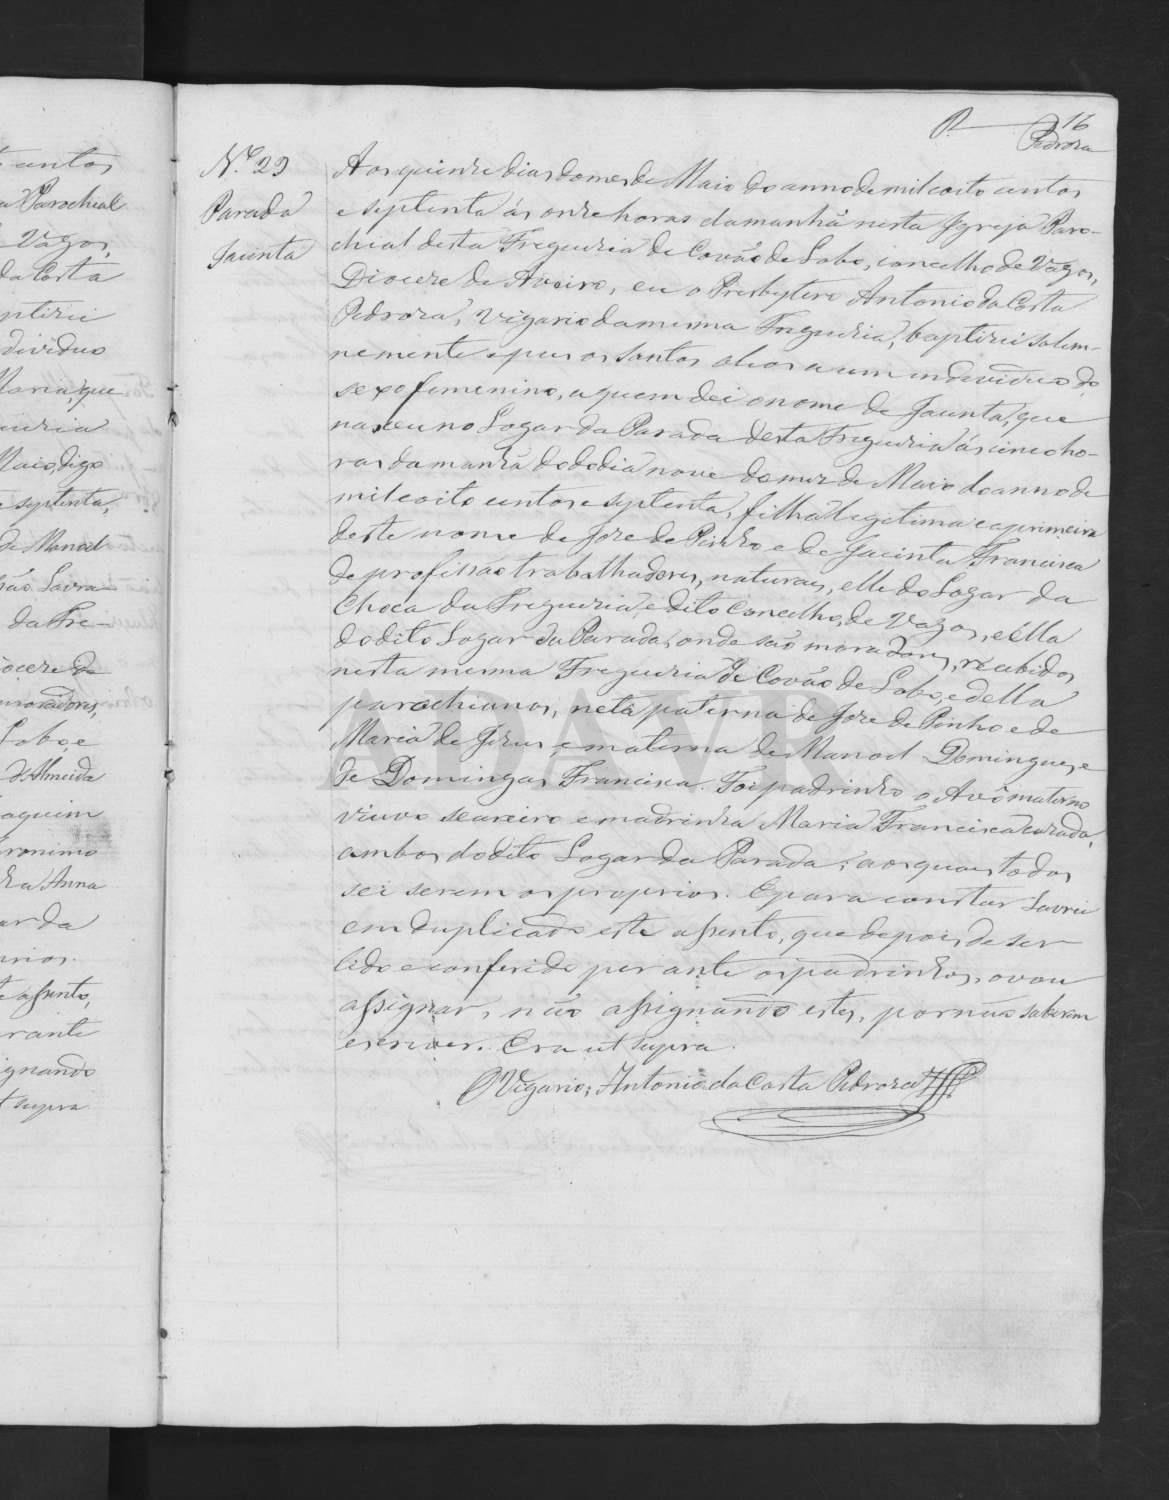 R 16
Pedroza
Nº 29
Parada
Jacinta
Aos quinze dias do mes de Maio do anno de mil e oito centos
e septenta ás onze horas da manhã nesta Igreja Paro-
chial desta Freguezia de Covão de Lobo, concelho de Vagos,
Diocese de Aveiro, eu o Presbytero Antonio da Costa
Pedroza, Vigario da mesma Freguezia, baptizei solem-
nemente e pus os santos oleos a um individuo do
sexo femenino, a quem dei o nome de Jacinta, que
nasceu no Logar da Parada desta Freguezia ás cinco ho-
ras da manhã do do dia nove do mez de Maio do anno de
mil e oito centos e septenta, filha legitima e a primeira
deste nome de Joze de Pinho e de Jacinta Francisca
de profissão trabalhadores, naturaes, elle do Logar da
Choca da Freguezia, e dito Concelho, de Vagos, e ella
do dito Logar da Parada, onde são moradores, recebidos
nesta mesma Freguezia de Covão de Lobo, e della
parochianos, neta paterna de Joze de Pinho e de
Maria de Jesus, e materna de Manoel Domingues, e
de Domingas Francisca. Foi padrinho o Avô materno
viuvo seareiro e madrinha Maria Francisca cazada,
ambos do dito Logar da Parada, aos quaes todos
sei serem os proprios. E para constar lavrei
em duplicado este assento, que depois de ser
lido e conferido perante os padrinhos, o vou
assignar, não assignando estes, por não saberem
escrever. Era ut supra.
O Vigario, Antonio da Costa Pedroza
centos
Parochial
Vagos,
da Costa
ptizei
dividuo
Maria que
uezia
Maio, digo
e septenta,
de Manoel
Lavra
da Fre-
ocese de
moradores,
Lobo, e
d'Almeida
oaquim
eronimo
Anna
ar da
prios.
assento,
rante
ignando
ut supra
ADAVR